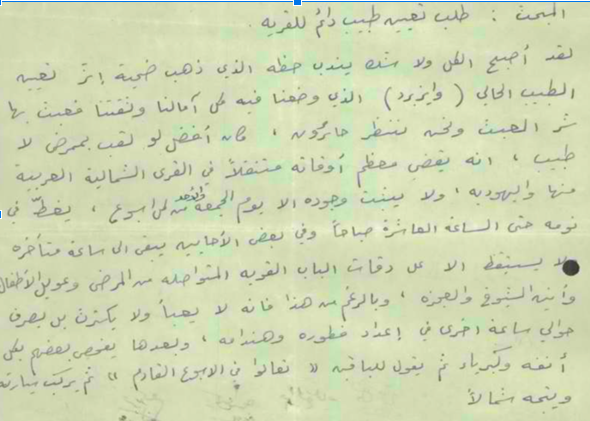 المبحث : طلب تعيين طبيب دائم للقريه .
لقد أصبح الكل ولا شك يندب حظه الذي ذهب ضحية إثر تعيين
الطبيب الحالي ( وايزبرد ) الذي وضعنا فيه كل آمالنا وثقتنا فعبث بها
شر العبث ونحن ننتظر حائرون ، كان أفضل لو لقب بممرض لا
طبيب ، انه يقضي معظم أوقاته متنقلاً في القرى الشمالية العربية
منها واليهوديه ، ولا يثبت وجوده الا يوم الجمعة والأحد من كل اسبوع ، يغطّ في
نومه حتى الساعة العاشرة صباحاً وفي بعض الأحايين يبقى الى ساعة متأخره
ولا يستيقظ الا على دقات الباب القويه المتواصله من المرضى وعويل الأطفال
وأنين الشيوخ والعجزه ، وبالرغم من هذا فانه لا يعبأ ولا يكترث بل يصرف
حوالي ساعة اخرى في إعداد فطوره وهندامه ، وبعدها يفحص بعضهم بكل
أنفه وكبرياء ثم يقول للباقين « تعالوا في الاسبوع القادم » ثم يركب سيارته
ويتجه شمالاً